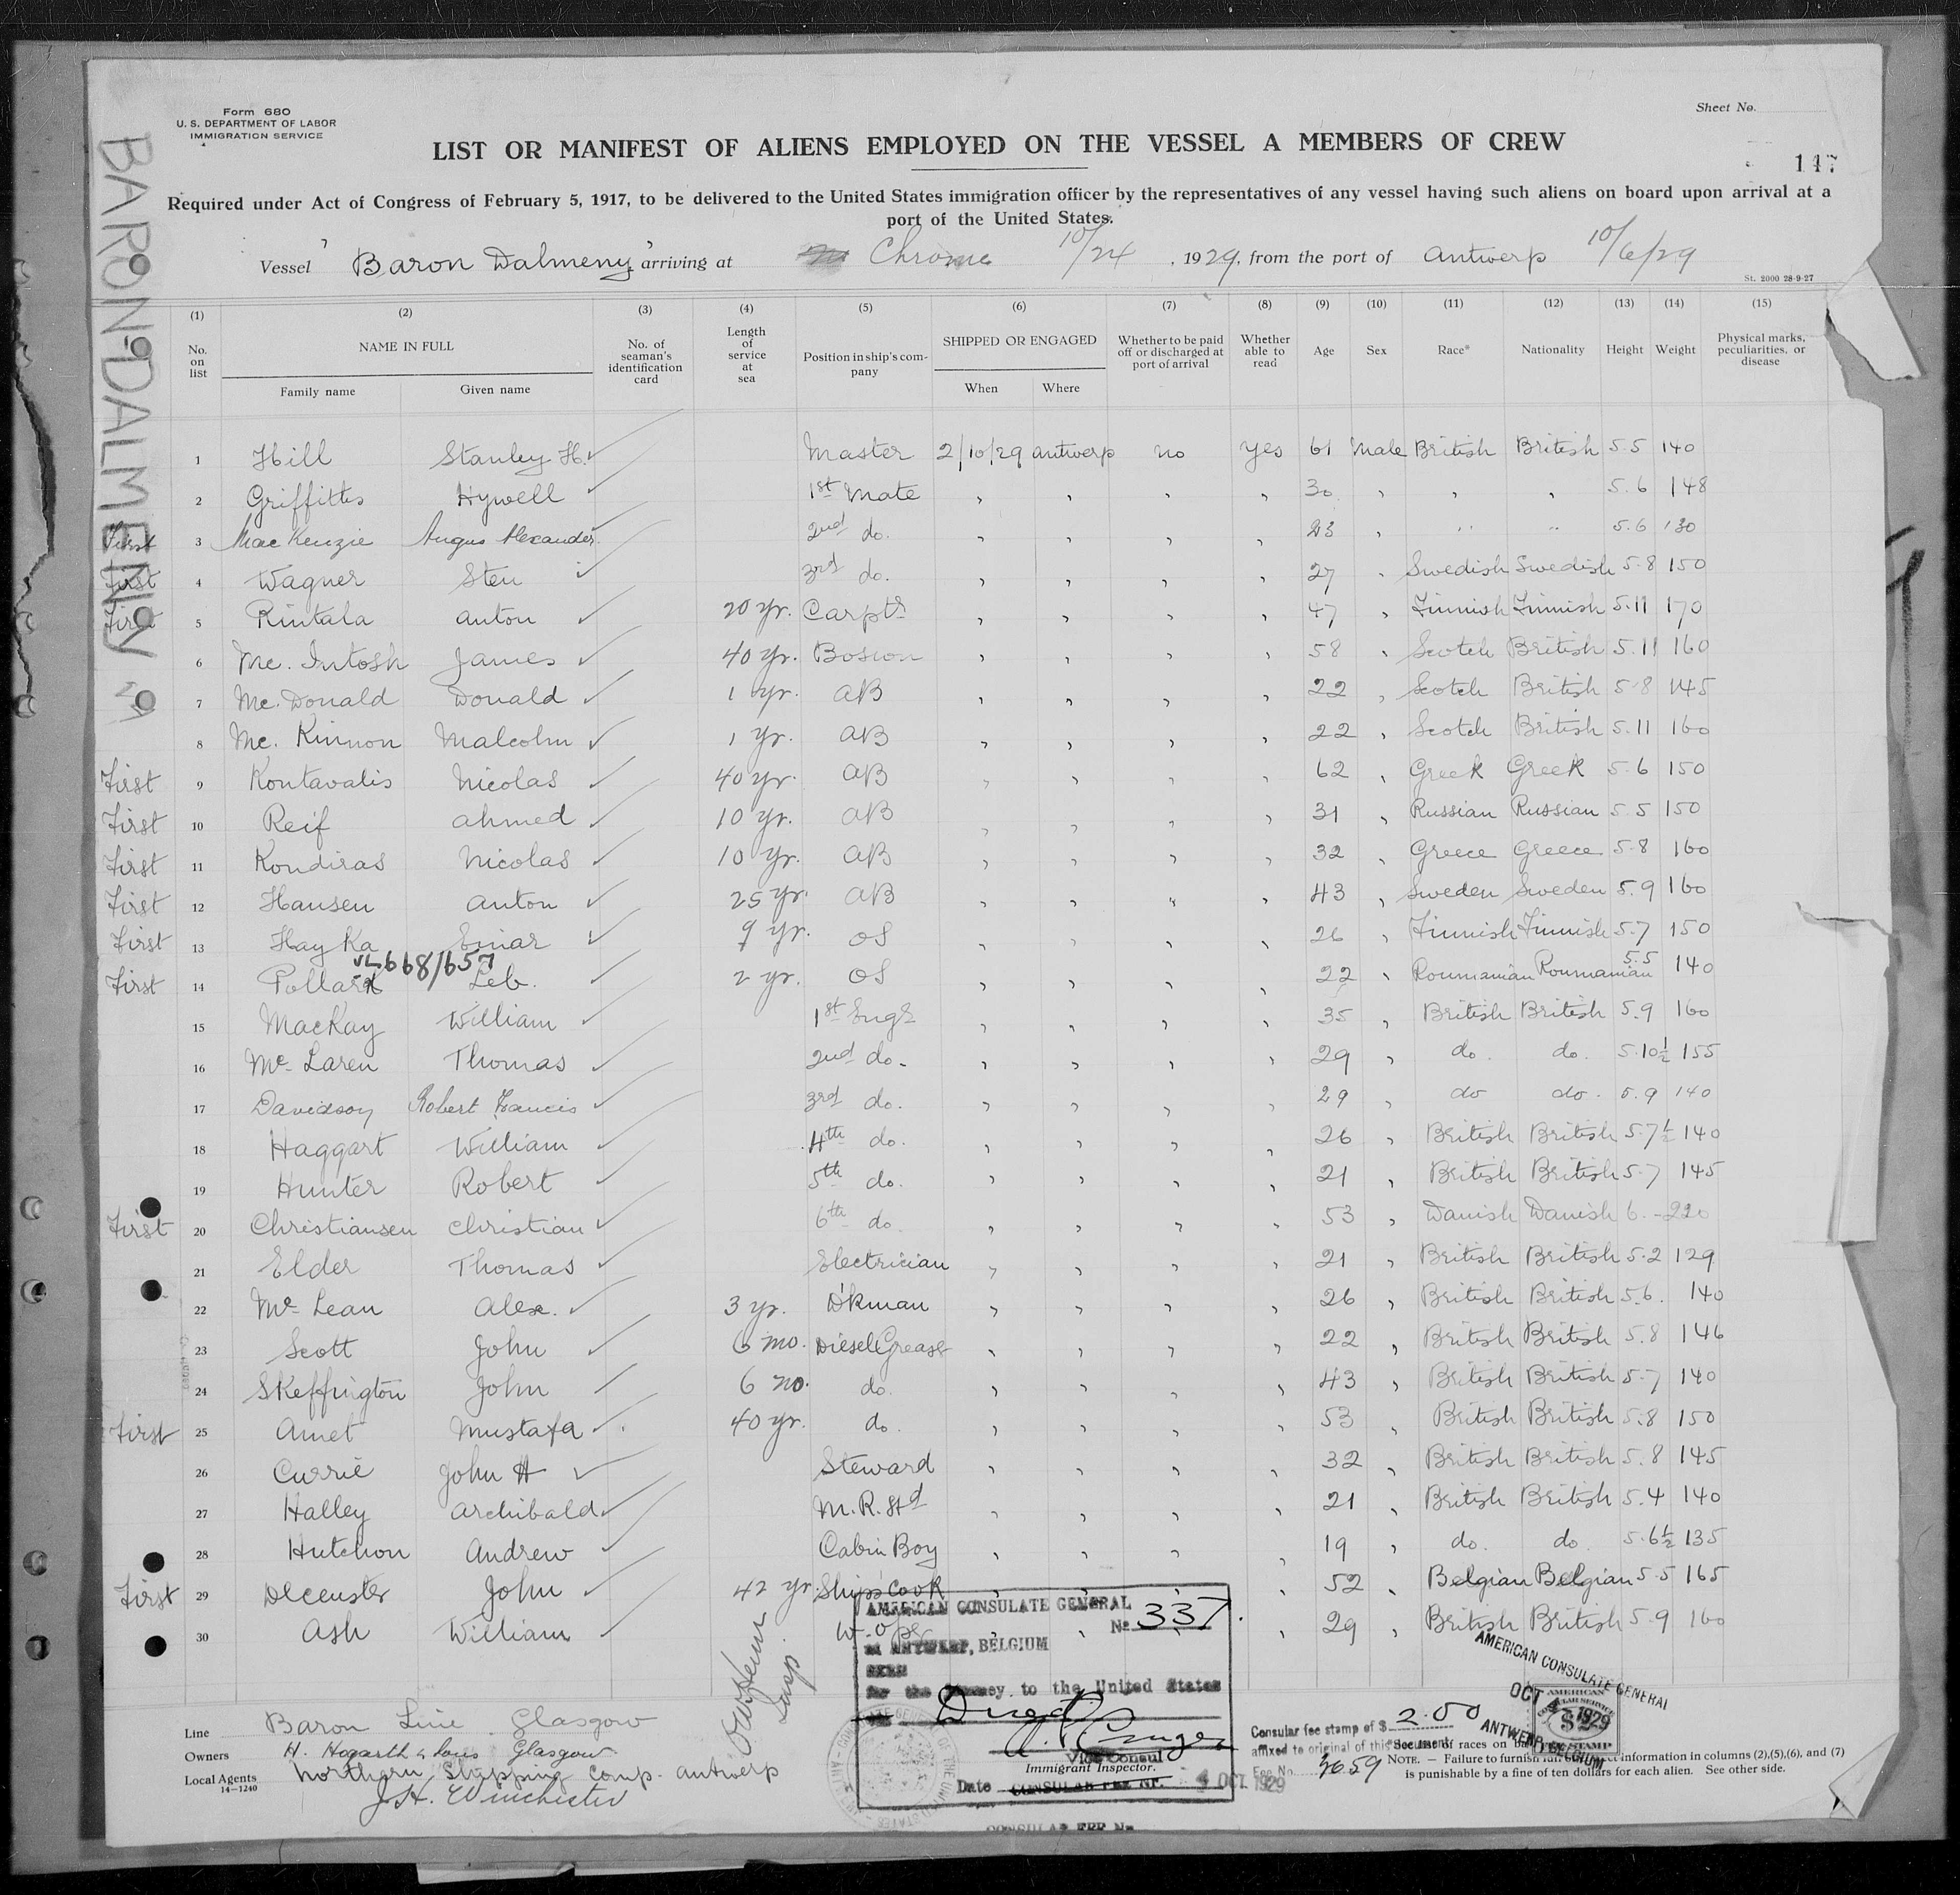 Form 680
U. S. DEPARTMENT OF LABOR
IMMIGRATION SERVICE
Sheet No.
LIST OR MANIFEST OF ALIENS EMPLOYED ON THE VESSEL A MEMBERS OF CREW
147
Required under Act of Congress of February 5, 1917, to be delivered to the United States immigration officer by the representatives of any vessel having such aliens on board upon arrival at a
port of the United States.
Vessel "Baron Dalmeny" arriving at Chrome 10/24, 1929, from the port of Antwerp 10/6/29
St. 2000 28-9-27
BARON DALMENY
(1) (2) (3) (4) (5) (6) (7) (8) (9) (10) (11) (12) (13) (14) (15)
No. on list NAME IN FULL No. of seaman's identification card Length of service at sea Position in ship's company SHIPPED OR ENGAGED Whether to be paid off or discharged at port of arrival Whether able to read Age Sex Race* Nationality Height Weight Physical marks, peculiarities, or disease
Family name Given name When Where
1 Hill Stanley H. Master 2/10/29 Antwerp no yes 61 Male British British 5.5 140
2 Griffiths Hywell 1st Mate " " " " 30 " " " 5.6 148
First 3 MacKenzie Angus Alexander 2nd do. " " " " 23 " " " 5.6 130
First 4 Wagner Sten 3rd do. " " " " 27 " Swedish Swedish 5.8 150
First 5 Rintala Anton 20 yr. Carptr " " " " 47 " Finnish Finnish 5.11 170
6 Mc. Intosh James 40 yr. Bosson " " " " 58 " Scotch British 5.11 160
7 Mc. Donald Donald 1 yr. AB " " " " 22 " Scotch British 5.8 145
8 Mc. Kinnon Malcolm 1 yr. AB " " " " 22 " Scotch British 5.11 160
First 9 Kontavalis Nicolas 40 yr. AB " " " " 62 " Greek Greek 5.6 150
First 10 Reif Ahmed 10 yr. AB " " " " 31 " Russian Russian 5.5 150
First 11 Kondiras Nicolas 10 yr. AB " " " " 32 " Greece Greece 5.8 160
First 12 Hansen Anton 25 yr. AB " " " " 43 " Sweden Sweden 5.9 160
First 13 Hayka Einar 9 yr. OS " " " " 26 " Finnish Finnish 5.7 150
668/657
First 14 Pollark Leb. 2 yr. OS " " " " 22 " Roumanian Roumanian 5.5 140
15 MacKay William 1st Engr " " " " 35 " British British 5.9 160
16 Mc Laren Thomas 2nd do. " " " " 29 " do. do. 5.10½ 155
17 Davidson Robert Francis 3rd do. " " " " 29 " do do. 5.9 140
18 Haggart William 4th do. " " " " 26 " British British 5.7½ 140
19 Hunter Robert 5th do. " " " " 21 " British British 5.7 145
First 20 Christiansen Christian 6th do. " " " " 53 " Danish Danish 6.- 220
21 Elder Thomas Electrician " " " " 21 " British British 5.2 129
22 Mc Lean Alex. 3 yr. D'kman " " " " 26 " British British 5.6. 140
23 Scott John 6 mo. Diesel Greaser " " " " 22 " British British 5.8 146
24 Skeffington John 6 mo. do. " " " " 43 " British British 5.7 140
First 25 Amet Mustafa 40 yr. do. " " " " 53 " British British 5.8 150
26 Currie John H Steward " " " " 32 " British British 5.8 145
27 Halley Archibald M.R. Std " " " " 21 " British British 5.4 140
28 Hutchon Andrew Cabin Boy " " " " 19 " do. do. 5.6½ 135
First 29 Deceuster John 42 yr. Ships Cook " " " " 52 " Belgian Belgian 5.5 165
30 Ash William " " " " 29 " British British 5.9 160
AMERICAN CONSULATE GENERAL
No. 337.
ANTWERP, BELGIUM
SEEN
for the journey to the United States
Vice Consul
Immigrant Inspector.
Date CONSULAR FEE 4 OCT 1929
Insp.
Line Baron Line. Glasgow
Owners H. Hogarth & Sons Glasgow
Local Agents Northern Shipping Comp. Antwerp
14-1240
J.H. Winchester
Consular fee stamp of $ 2.00
affixed to original of this document
Fee No. 3659
AMERICAN CONSULATE GENERAL
OCT 4 1929
ANTWERP, BELGIUM
AMERICAN
$2
STAMP
NOTE. — Failure to furnish information in columns (2),(5),(6), and (7)
is punishable by a fine of ten dollars for each alien. See other side.